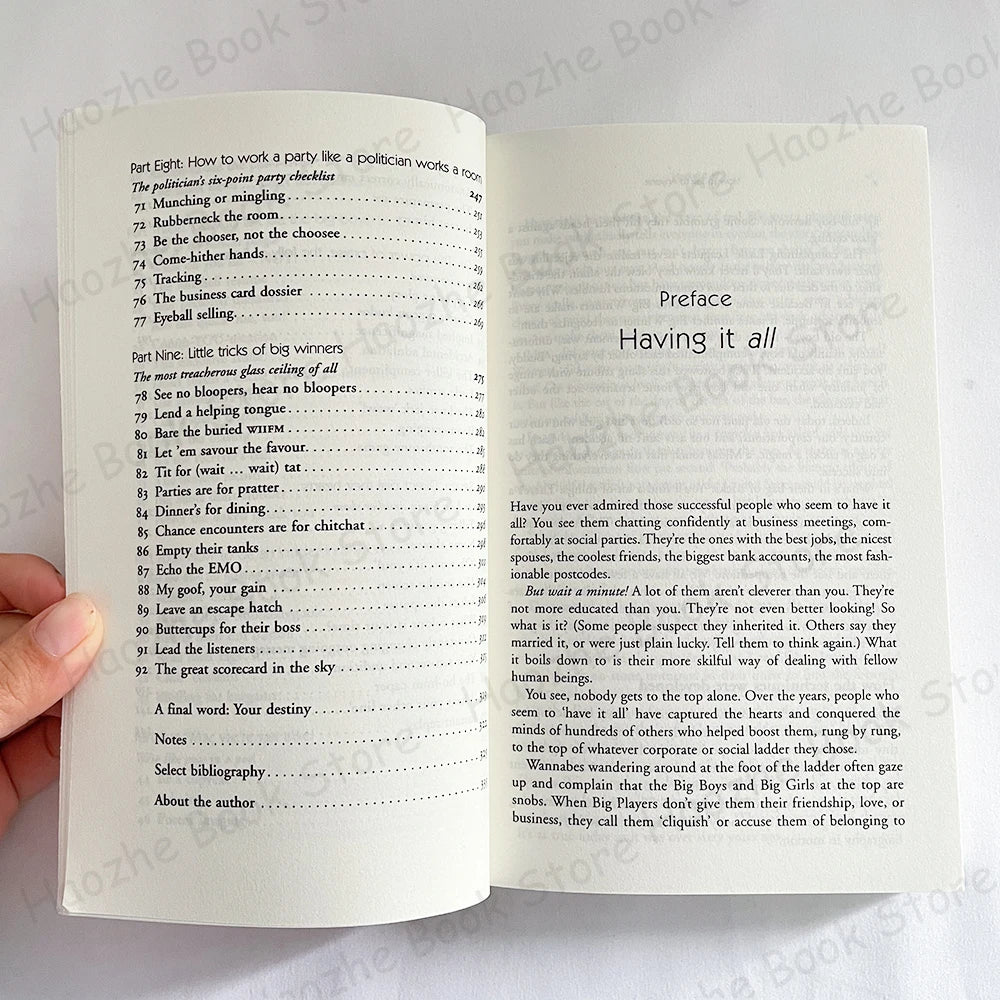 Part Eight: How to work a party like a politician works a room
The politician's six-point party checklist 247
71 Munching or mingling 251
72 Rubberneck the room 253
73 Be the chooser, not the choosee 255
74 Come-hither hands 259
75 Tracking 262
76 The business card dossier 266
77 Eyeball selling 269
Part Nine: Little tricks of big winners
The most treacherous glass ceiling of all 275
78 See no bloopers, hear no bloopers 277
79 Lend a helping tongue
80 Bare the buried WIIFM 282
81 Let 'em savour the favour
82 Tit for (wait … wait) tat 288
83 Parties are for pratter
84 Dinner's for dining 293
85 Chance encounters are for chitchat
86 Empty their tanks 298
87 Echo the EMO
88 My goof, your gain
89 Leave an escape hatch
90 Buttercups for their boss
91 Lead the listeners
92 The great scorecard in the sky
A final word: Your destiny
Notes
Select bibliography
About the author
Preface
Having it all
Have you ever admired those successful people who seem to have it
all? You see them chatting confidently at business meetings, com-
fortably at social parties. They're the ones with the best jobs, the nicest
spouses, the coolest friends, the biggest bank accounts, the most fash-
ionable postcodes.
But wait a minute! A lot of them aren't cleverer than you. They're
not more educated than you. They're not even better looking! So
what is it? (Some people suspect they inherited it. Others say they
married it, or were just plain lucky. Tell them to think again.) What
it boils down to is their more skilful way of dealing with fellow
human beings.
You see, nobody gets to the top alone. Over the years, people who
seem to 'have it all' have captured the hearts and conquered the
minds of hundreds of others who helped boost them, rung by rung,
to the top of whatever corporate or social ladder they chose.
Wannabes wandering around at the foot of the ladder often gaze
up and complain that the Big Boys and Big Girls at the top are
snobs. When Big Players don't give them their friendship, love, or
business, they call them 'cliquish' or accuse them of belonging to
Haozhe Book Store